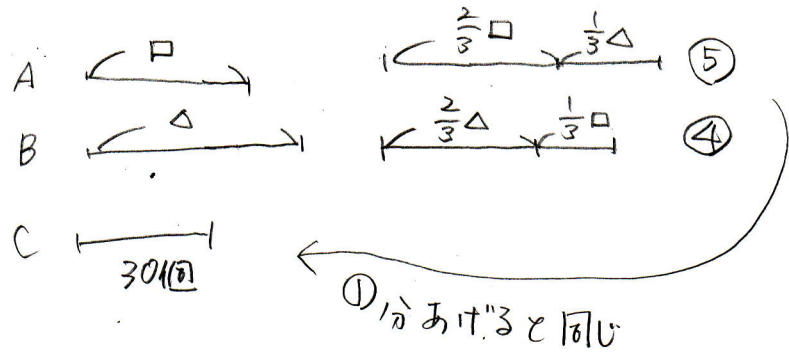 □ 2/3□ 1/3△
A ⑤
△ 2/3△ 1/3□
B ④
C
30個
①分あげると同じ